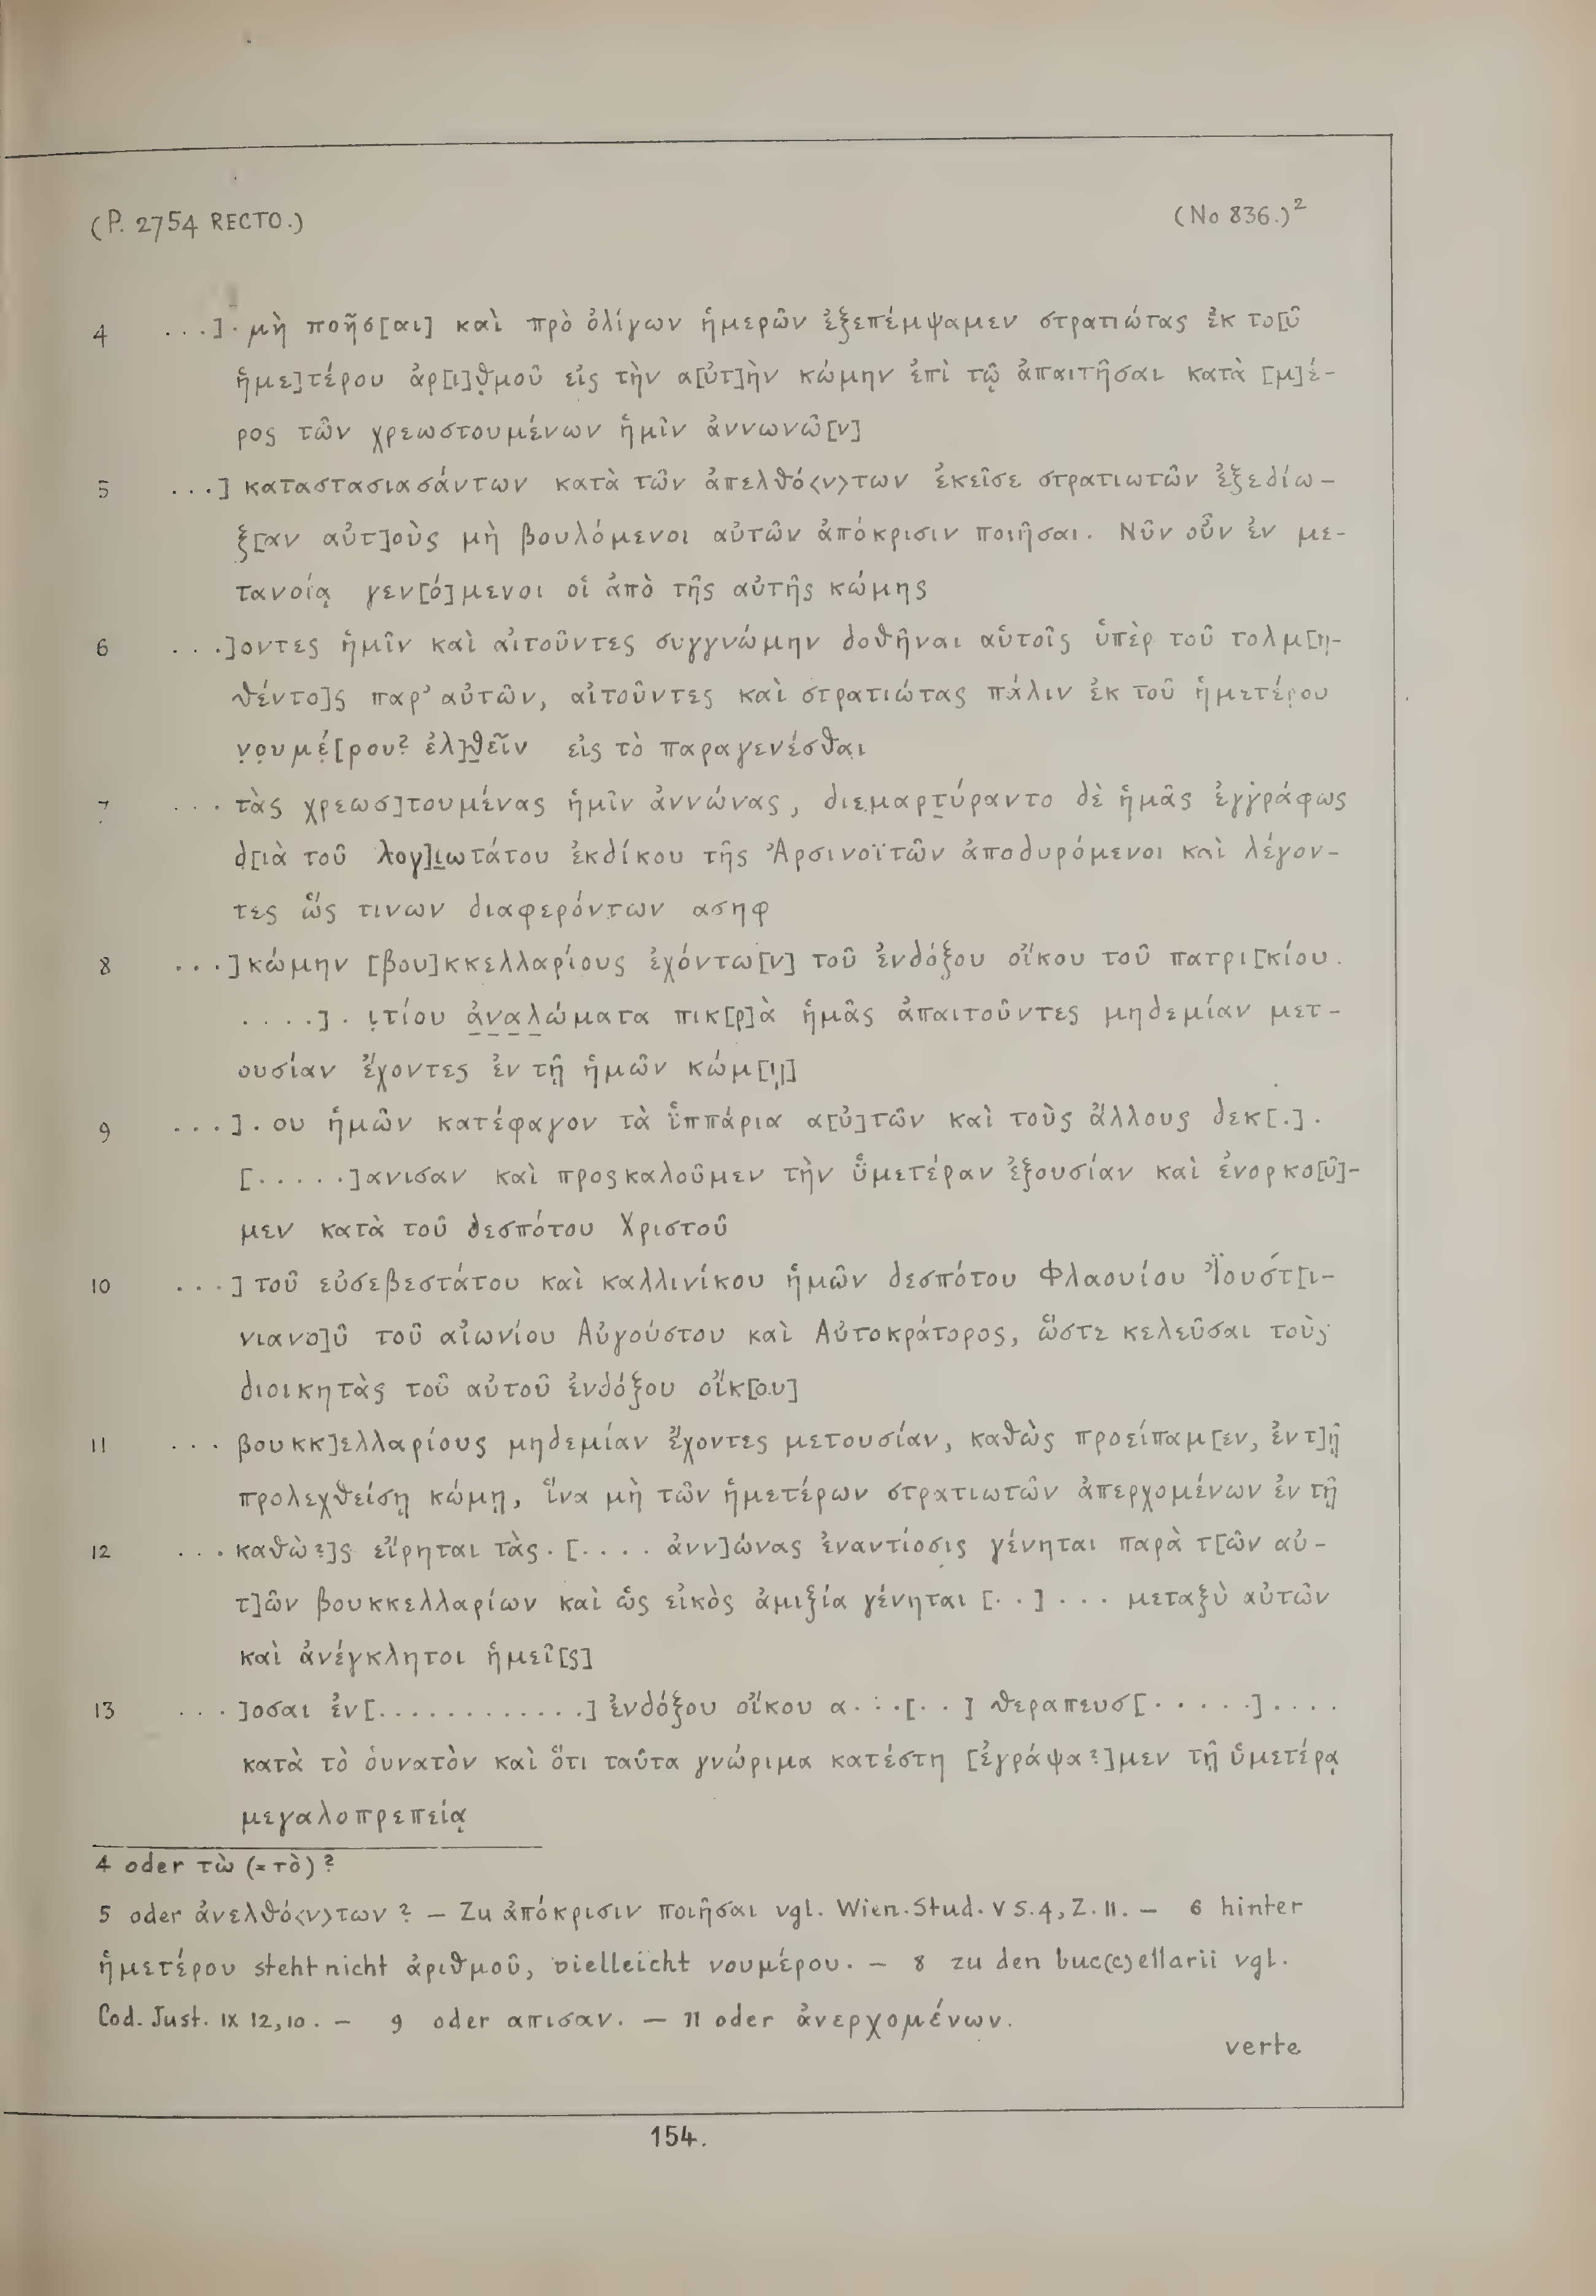 (P. 2754 RECTO.) (No 836.)²
4 ...]. μὴ ποῆσ[αι] καὶ πρὸ ὀλίγων ἡμερῶν ἐξεπέμψαμεν στρατιώτας ἐκ το[ῦ
ἡμε]τέρου ἀρ[ι]θ̣μοῦ εἰς τὴν α[ὐτ]ὴν κώμην ἐπὶ τῷ ἀπαιτῆσαι κατὰ [μ]έ-
ρος τῶν χρεωστουμένων ἡμῖν ἀννωνῶ[ν]
5 ...] καταστασιασάντων κατὰ τῶν ἀπελθό<ν>των ἐκεῖσε στρατιωτῶν ἐξεδίω-
ξ[αν αὐτ]οὺς μὴ βουλόμενοι αὐτῶν ἀπόκρισιν ποιῆσαι. Νῦν οὖν ἐν με-
τανοίᾳ γεν[ό]μενοι οἱ ἀπὸ τῆς αὐτῆς κώμης
6 ...]οντες ἡμῖν καὶ αἰτοῦντες συγγνώμην δοθῆναι αὐτοῖς ὑπὲρ τοῦ τολμ[η-
θέντο]ς παρ' αὐτῶν, αἰτοῦντες καὶ στρατιώτας πάλιν ἐκ τοῦ ἡμετέρου
ν̣ο̣υμέ̣[ρου? ἐλ]θ̣εῖν εἰς τὸ παραγενέσθαι
7 ... τὰς χρεωσ]τουμένας ἡμῖν ἀννώνας, διεμαρτύραντο δὲ ἡμᾶς ἐγγράφως
δ[ιὰ τοῦ λογ]ι̣ωτάτου ἐκδίκου τῆς Ἀρσινοϊτῶν ἀποδυρόμενοι καὶ λέγον-
τες ὥς τινων διαφερόντων ασηφ
8 ...] κώμην [βου]κκελλαρίους ἐχόντω[ν] τοῦ ἐνδόξου οἴκου τοῦ πατρι[κίου.
....]. ι̣τίου ἀναλώματα πικ[ρ]ὰ ἡμᾶς ἀπαιτοῦντες μηδεμίαν μετ-
ουσίαν ἔχοντες ἐν τῇ ἡμῶν κώμ[ῃ]
9 ...]. ου ἡμῶν κατέφαγον τὰ ἱ̈ππάρια α[ὐ]τῶν καὶ τοὺς ἄλλους δεκ[.].
[.....]ανισαν καὶ προςκαλοῦμεν τὴν ὑ̈μετέραν ἐξουσίαν καὶ ἐνορκο[ῦ]-
μεν κατὰ τοῦ δεσπότου Χριστοῦ
10 ...] τοῦ εὐσεβεστάτου καὶ καλλινίκου ἡμῶν δεσπότου Φλαουίου Ἰ̈ουστ[ι-
νιανο]ῦ τοῦ αἰωνίου Αὐγούστου καὶ Αὐτοκράτορος, ὥστε κελεῦσαι τοὺς
διοικητὰς τοῦ αὐτοῦ ἐνδόξου οἴκ[ου]
11 ... βουκκ]ελλαρίους μηδεμίαν ἔχοντες μετουσίαν, καθὼς προείπαμ[εν, ἐν τ]ῇ
προλεχθείσῃ κώμῃ, ἵνα μὴ τῶν ἡμετέρων στρατιωτῶν ἀπερχομένων ἐν τῇ
12 ... καθὼ?]ς εἴρηται τὰς. [.... ἀνν]ώνας ἐναντίοσις γένηται παρὰ τ[ῶν αὐ-
τ]ῶν βουκκελλαρίων καὶ ὡς εἰκὸς ἀμιξία γένηται [..] ... μεταξὺ αὐτῶν
καὶ ἀνέγκλητοι ἡμεῖ[ς]
13 ... ]οσαι ἐν[............] ἐνδόξου οἴκου α...[..] θεραπευσ[.....]....
κατὰ τὸ δυνατὸν καὶ ὅτι ταῦτα γνώριμα κατέστη [ἐγράψα?]μεν τῇ ὑμετέρᾳ
μεγαλοπρεπείᾳ
4 oder τὼ (=τὸ)?
5 oder ἀνελθό<ν>των? — Zu ἀπόκρισιν ποιῆσαι vgl. Wien. Stud. V S. 4, Z. 11. — 6 hinter
ἡμετέρου steht nicht ἀριθμοῦ, vielleicht νουμέρου. — 8 zu den buc(c)ellarii vgl.
Cod. Just. IX 12,10. — 9 oder απισαν. — 11 oder ἀνερχομένων.
verte
154.